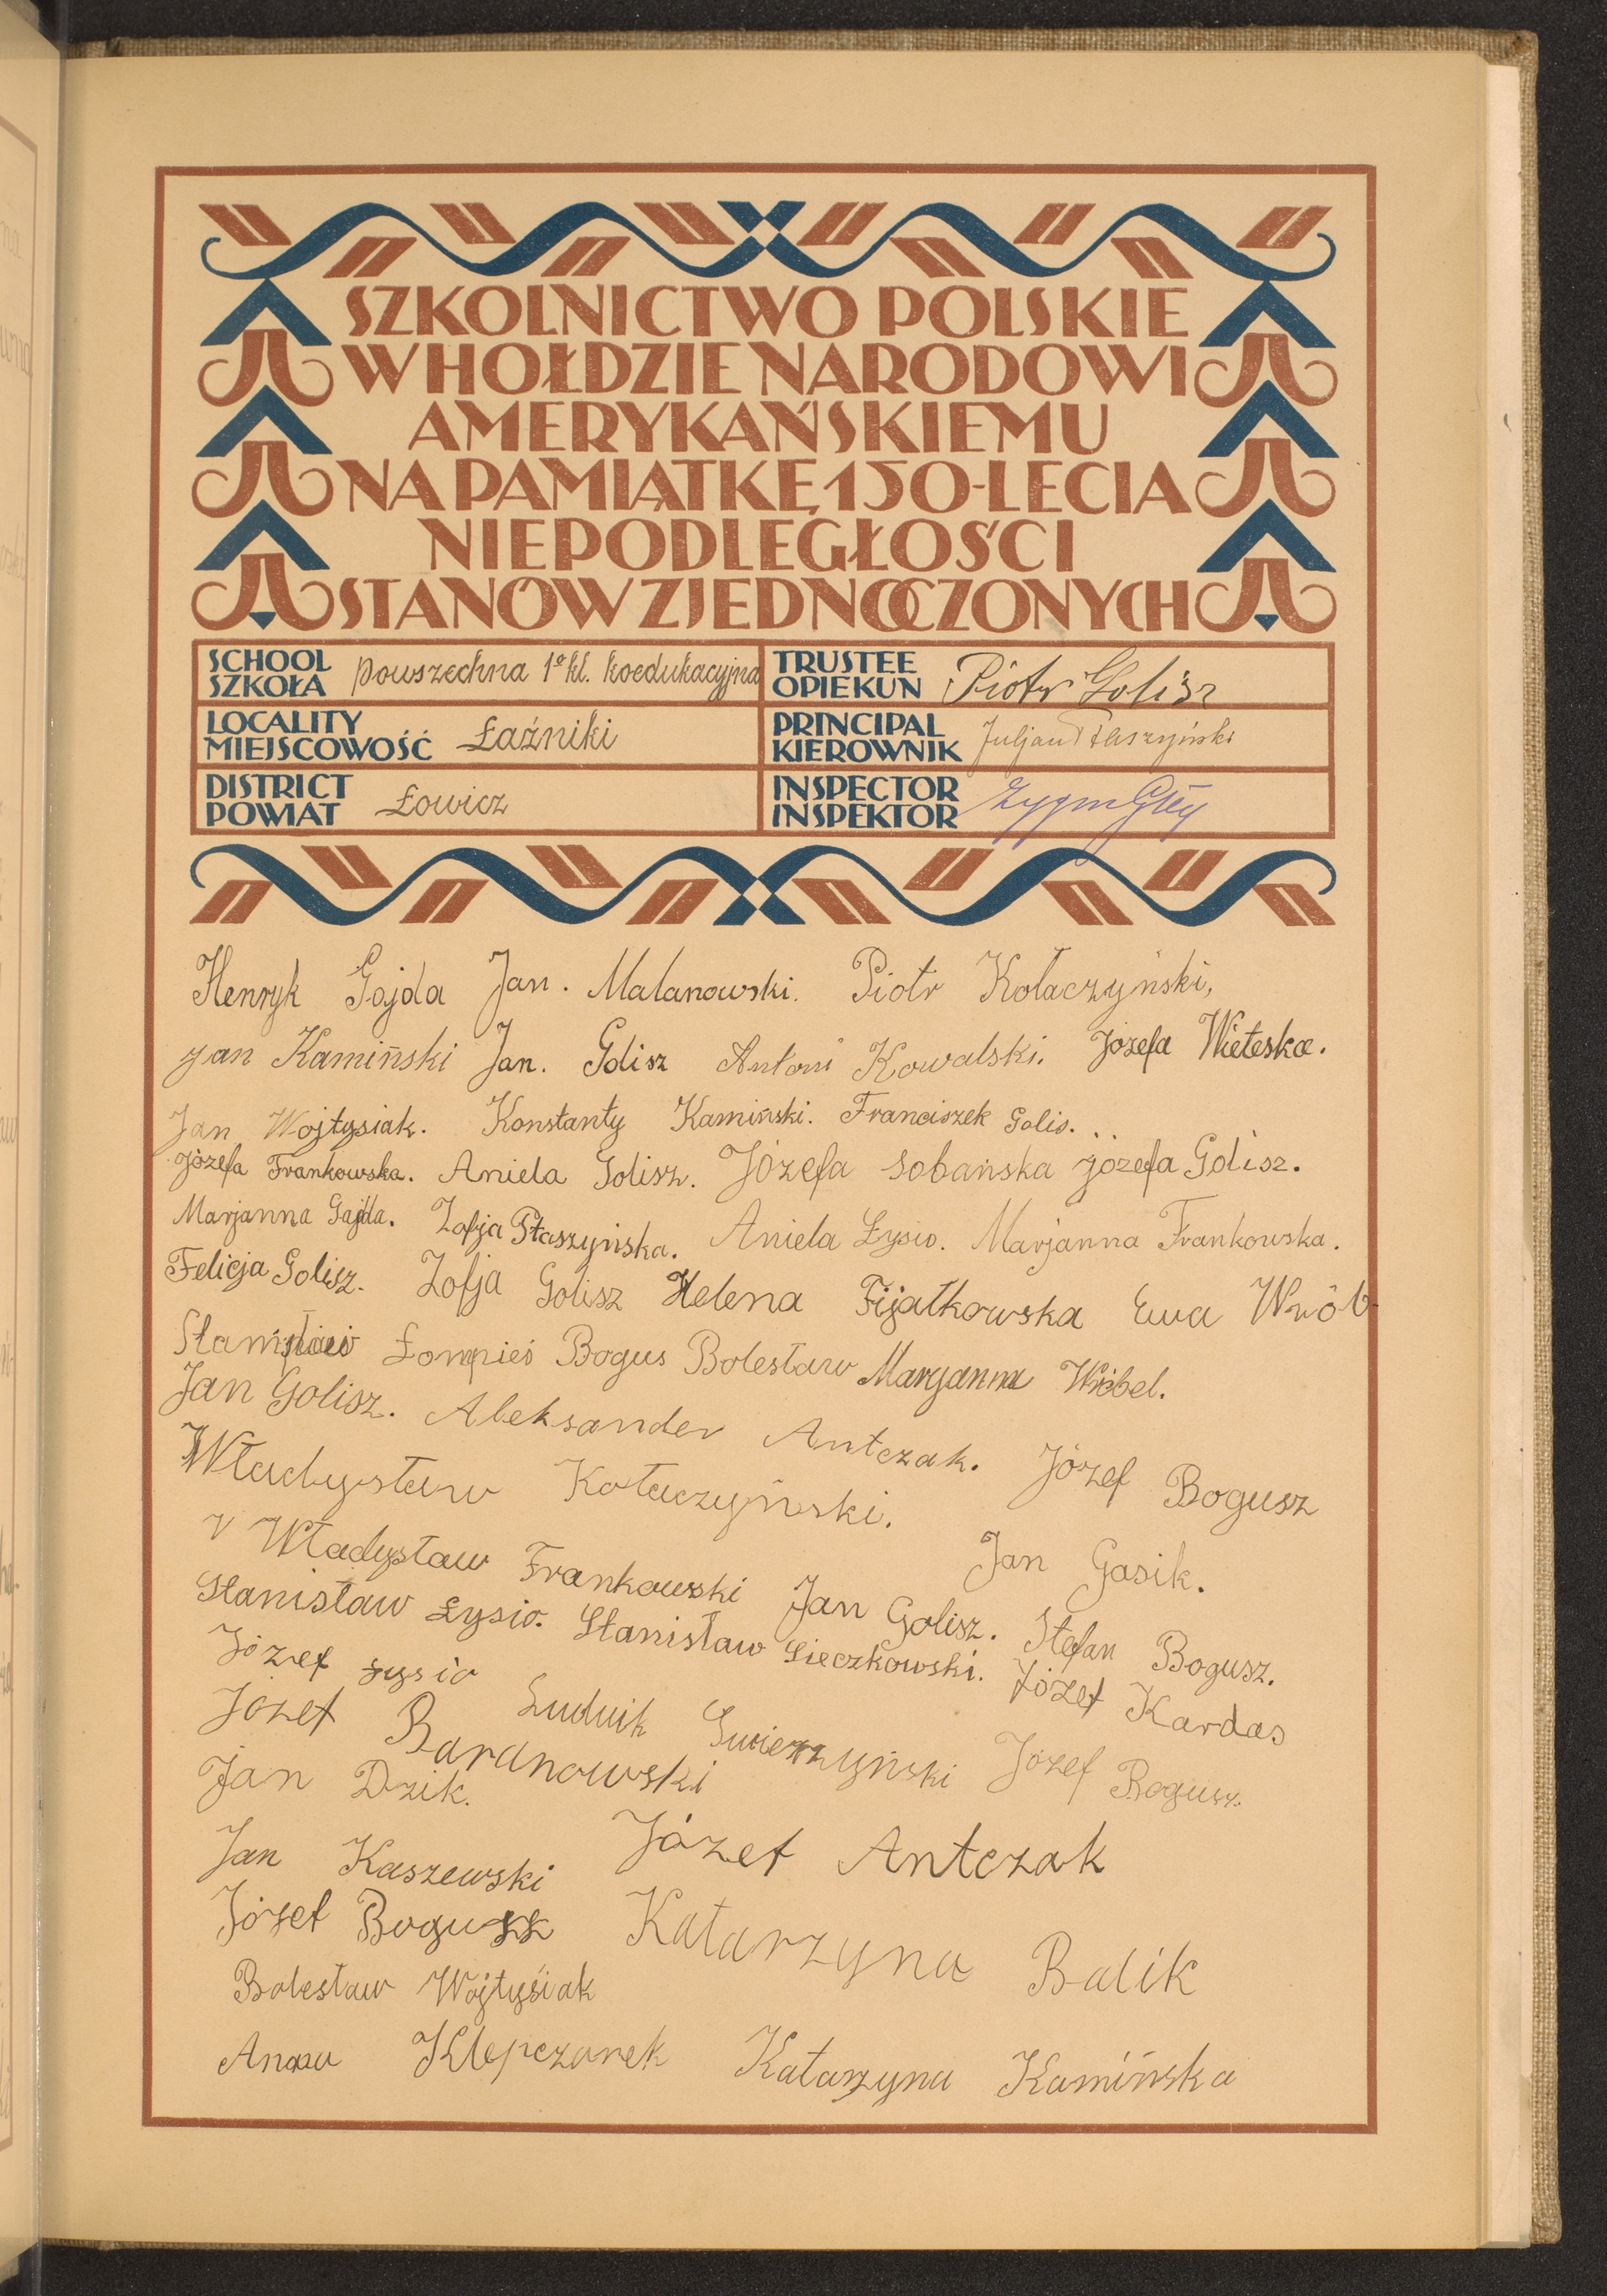 SZKOLNICTWO POLSKIE
W HOŁDZIE NARODOWI
AMERYKAŃSKIEMU
NA PAMIĄTKĘ 150-LECIA
NIEPODLEGŁOŚCI
STANÓW ZJEDNOCZONYCH
SCHOOL
SZKOŁA powszechna 1º kl. koedukacyjna
TRUSTEE
OPIEKUN Piotr Golisz
LOCALITY
MIEJSCOWOŚĆ Łaźniki
PRINCIPAL
KIEROWNIK Juljan Ptaszyński
DISTRICT
POWIAT Łowicz
INSPECTOR
INSPEKTOR
Henryk Gajda Jan. Malanowski. Piotr Kołaczyński,
Jan Kamiński Jan. Golisz Antoni Kowalski. Józefa Wieteska.
Jan Wojtysiak. Konstanty Kamiński. Franciszek Golis...
Józefa Frankowska. Aniela Golisz. Józefa Sobańska Józefa Golisz.
Marjanna Gajda. Zofja Ptaszyńska. Aniela Łysio. Marjanna Frankowska.
Felicja Golisz. Zofja Golisz Helena Fijałkowska Ewa Wrób
Stanisław Łompieś Bogus Bolesław Maryanna Wróbel.
Jan Golisz. Aleksander Antczak. Józef Bogusz
Władysław Kołaczyński. Jan Gasik.
V Władysław Frankowski Jan Golisz. Stefan Bogusz.
Stanisław Łysio. Stanisław Sieczkowski. Józef Kardas
Józef Łysio Ludwik Swierzyński Józef Bogusz.
Józef Baranowski
Jan Dzik.
Jan Kaszewski Józef Antczak
Józef Bogusz Katarzyna Balik
Bolesław Wojtysiak
Anna Klepczarek Katarzyna Kamińska